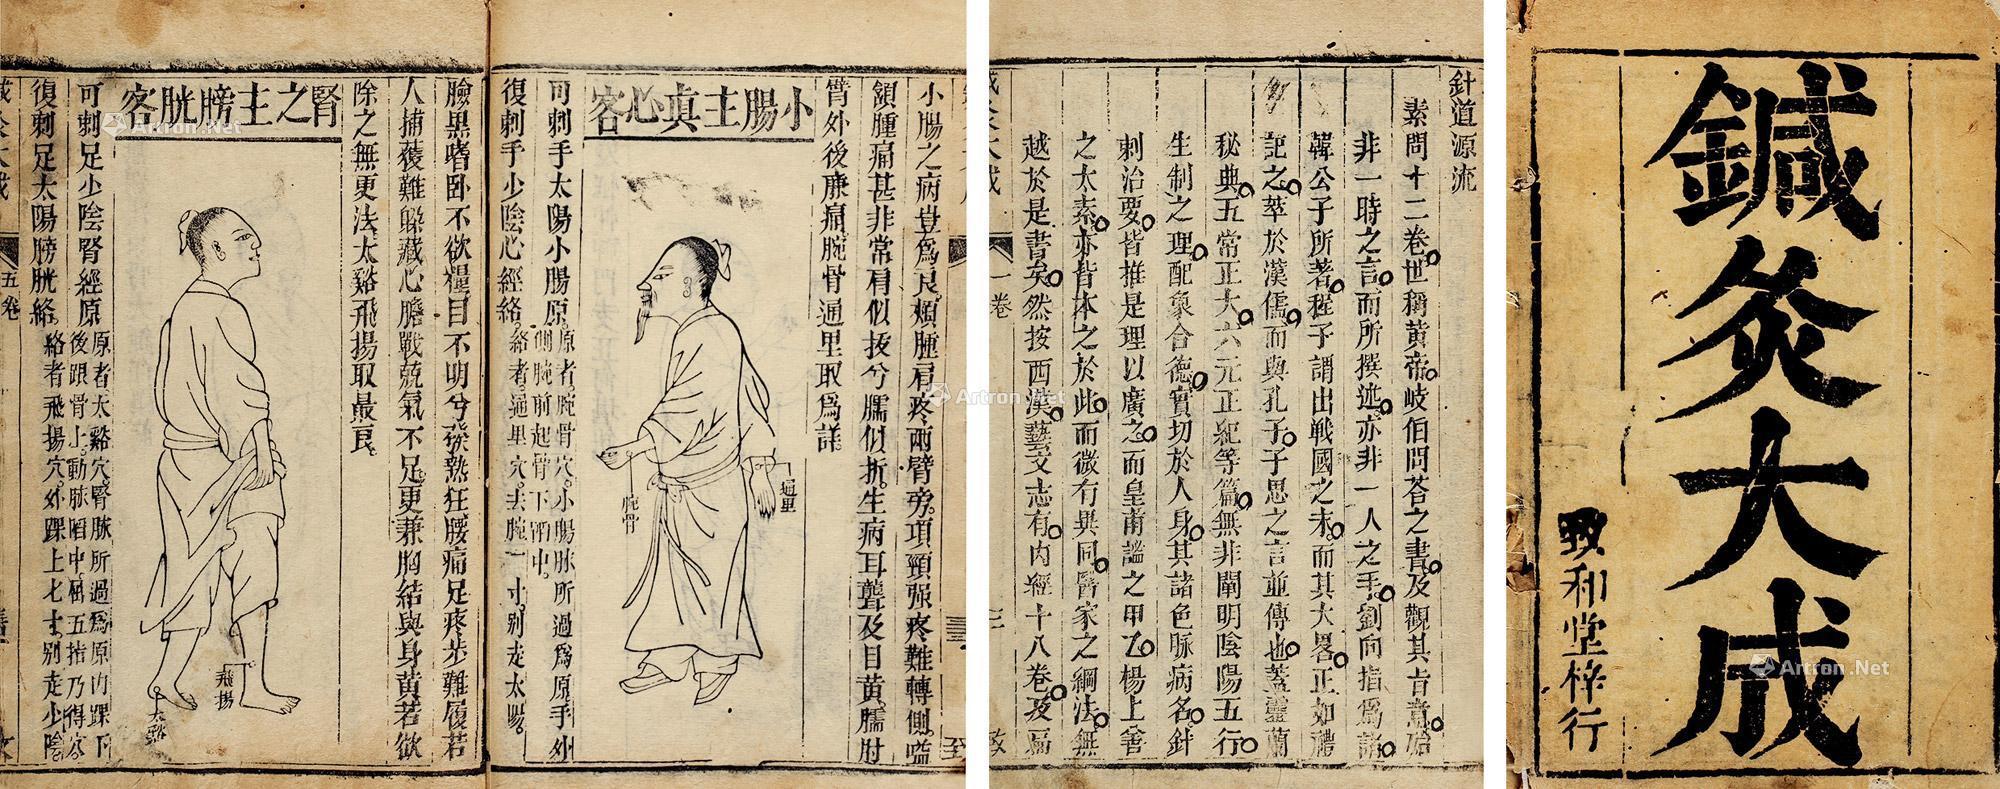 鍼灸大成
致和堂梓行
針道源流
素問十二卷世稱黃帝岐伯問荅之書及觀其旨意殆
非一時之言而所撰述亦非一人之手劉向指爲諸
韓公子所著程子謂出戰國之末而其大畧正如禮
記之萃於漢儒而與孔子子思之言並傳也蓋靈蘭
秘典五常正大六元正紀等篇無非闡明陰陽五行
生制之理配象合德實切於人身其諸色脉病名針
刺治要皆推是理以廣之而皇甫謐之甲乙楊上善
之太素亦皆本之於此而微有異同醫家之綱法無
越於是書矣然按西漢藝文志有內經十八卷及扁
一卷
小腸之病豈爲良頰腫肩疼兩臂旁項頸强疼難轉側嗌
頷腫痛甚非常肩似拔兮臑似折生病耳聾及目黃臑肘
臂外後廉痛腕骨通里取爲詳
小腸主真心客
通里
腕骨
可刺手太陽小腸原原者腕骨穴小腸脉所過爲原手外
側腕前起骨下陷中
復刺手少陰心經絡絡者通里穴去腕一寸別走太陽
臉黑嗜卧不欲糧目不明兮發熱狂腰痛足疼步難履若
人捕獲難躲藏心膽戰兢氣不足更兼胸結與身黃若欲
除之無更法太谿飛揚取最良
腎之主膀胱客
飛揚
太谿
可刺足少陰腎經原原者太谿穴腎脉所過爲原內踝下
後跟骨上動脉陷中屈五指乃得穴
復刺足太陽膀胱絡絡者飛揚穴外踝上七寸別走少陰
五卷
Artron.Net
Artron.Net
Artron.Net